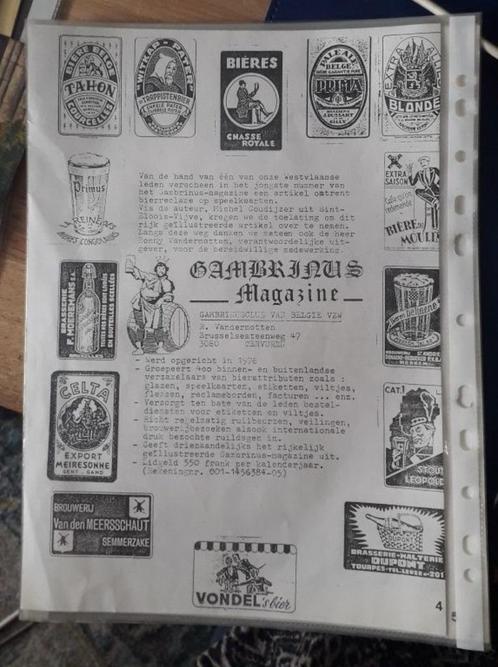 BIÈRE BELGE
TAHON
COURCELLES
WITKAP-PATER
TRAPPISTENBIER
BIÈRES
CHASSE
ROYALE
PALE-ALE
BELGE
PRIMA
GILLY
EXTRA
BLONDE
Primus
EXTRA
SAISON
BIÈRE
MOULE
Van de hand van één van onze Westvlaamse
leden verscheen in het jongste nummer van
het Gambrinus-magazine een artikel omtrent
bierreclame op speelkaarten.
Via de auteur, Michel Goudijzer uit Sint-
Eloois-Vijve, kregen we de toelating om dit
rijk geïllustreerde artikel over te nemen.
Langs deze weg danken we meteen ook de heer
Ronny Vandernotten, verantwoordelijke uit-
gever, voor de bereidwillige medewerking.
GAMBRINUS
Magazine
GAMBRINUSCLUB VAN BELGIE VZW
R. Vandernotten
Brusselsesteenweg 47
3080 TERVUREN
- Werd opgericht in 1976
- Groepeert 400 binnen- en buitenlandse
verzamelaars van bierattributen zoals :
glazen, speelkaarten, etiketten, viltjes,
flessen, reclameborden, facturen ... enz.
- Verzorgt ten bate van de leden bestel-
diensten voor etiketten en viltjes.
- Richt regelmatig ruilbeurzen, veilingen,
brouwerijbezoeken alsook internationale
druk bezochte ruildagen in.
- Geeft driemaandelijks het rijkelijk
geïllustreerde Gambrinus-magazine uit.
- Lidgeld 550 frank per kalenderjaar.
(Rekeningnr. 001-1456384-05)
BRASSERIE
BRUXELLES
CELTA
EXPORT
MEIRESONNE
GENT - GAND
BROUWERIJ
CAT.I
STOUT
LEOPOLD
BROUWERIJ
Van den MEERSSCHAUT
SEMMERZAKE
VONDEL'sbier
BRASSERIE-MALTERIE
DUPONT
4
5